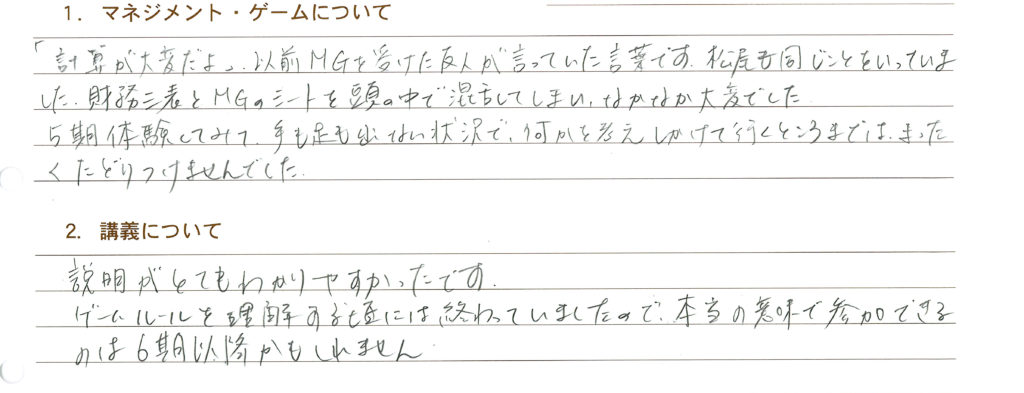 1. マネジメント・ゲームについて
「計算が大変だよ」以前MGを受けた友人が言っていた言葉です。松尾も同じことをいっていま
した。財務三表とMGのシートを頭の中で混乱してしまい、なかなか大変でした
5期体験してみて、手も足も出ない状況で、何かを考えしかけて行くところまでは、まった
くたどりつけませんでした。
2. 講義について
説明がとてもわかりやすかったです。
ゲームルールを理解する頃には終わっていましたので、本当の意味で参加できる
のは6期以降かもしれません